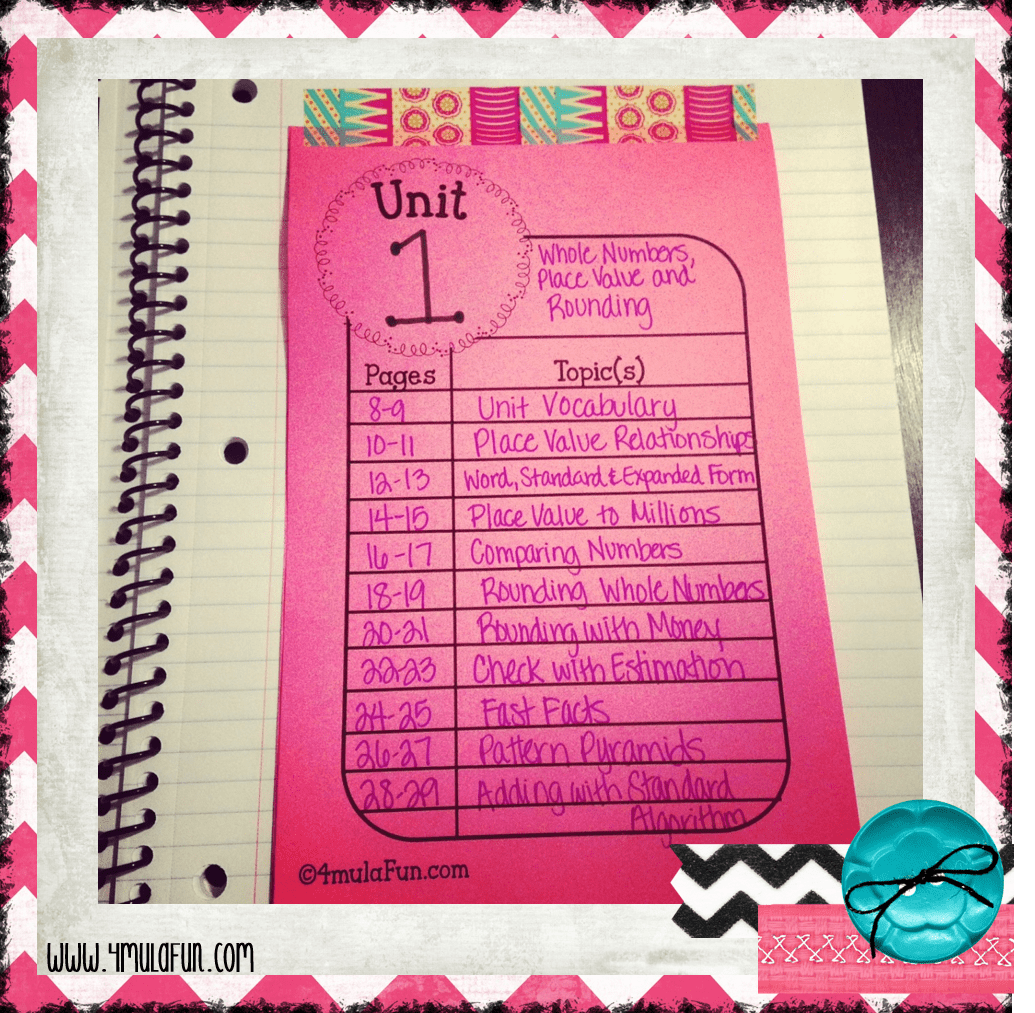 Unit
1
Whole Numbers,
Place Value and
Rounding
Pages Topic(s)
8-9 Unit Vocabulary
10-11 Place Value Relationships
12-13 Word, Standard & Expanded Form
14-15 Place Value to Millions
16-17 Comparing Numbers
18-19 Rounding Whole Numbers
20-21 Rounding with Money
22-23 Check with Estimation
24-25 Fast Facts
26-27 Pattern Pyramids
28-29 Adding with Standard
Algorithm
©4mulaFun.com
www.4mulafun.com